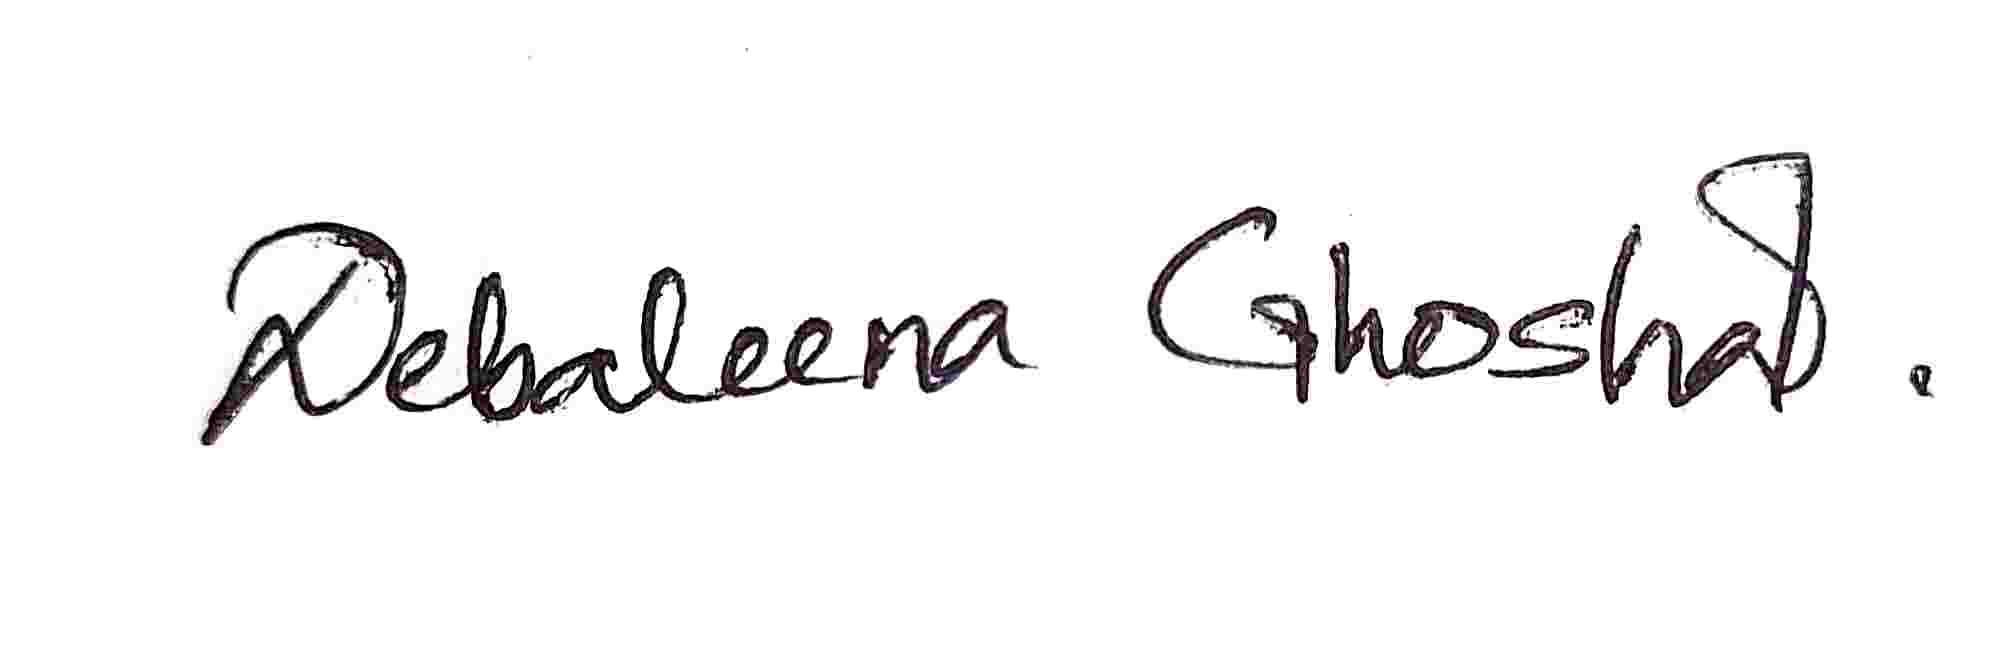 Debaleena Ghoshal.